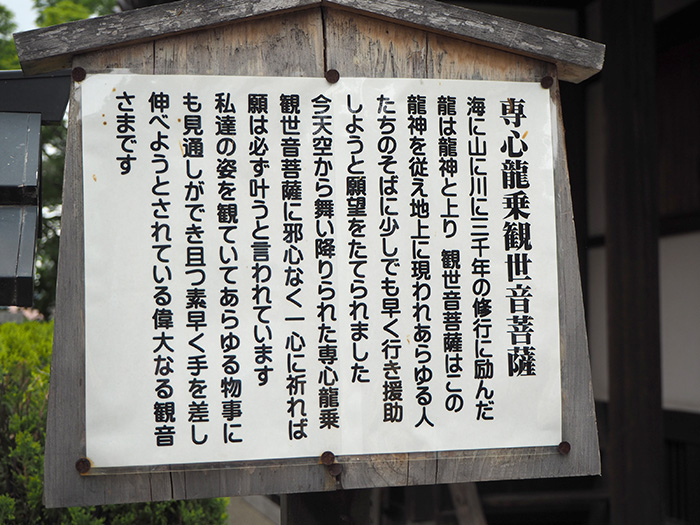 専心龍乗観世音菩薩
海に山に川に三千年の修行に励んだ
龍は龍神と上り 観世音菩薩はこの
龍神を従え地上に現われあらゆる人
たちのそばに少しでも早く行き援助
しようと願望をたてられました
今天空から舞い降りられた専心龍乗
観世音菩薩に邪心なく一心に祈れば
願は必ず叶うと言われています
私達の姿を観ていてあらゆる物事に
も見通しができ且つ素早く手を差し
伸べようとされている偉大なる観音
さまです